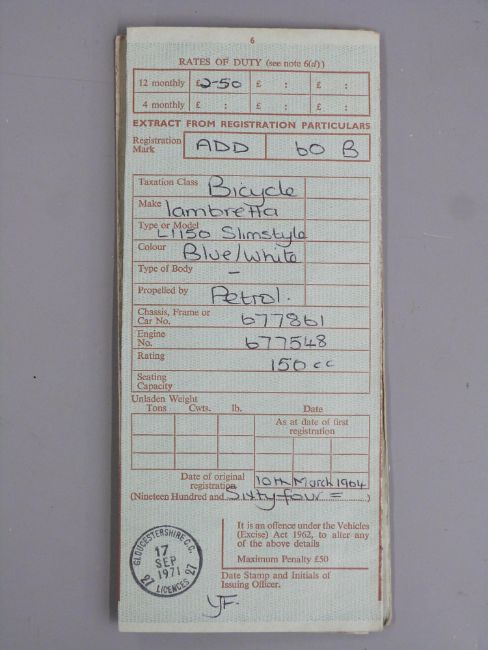 6
RATES OF DUTY (see note 6(d))
12 monthly £2-50 £ : £ :
4 monthly £ : £ : £ :
EXTRACT FROM REGISTRATION PARTICULARS
Registration Mark ADD 60 B
Taxation Class Bicycle
Make lambretta
Type or Model LI150 Slimstyle
Colour Blue/White
Type of Body -
Propelled by Petrol.
Chassis, Frame or Car No. 677861
Engine No. 677548
Rating 150 cc
Seating Capacity
Unladen Weight
Tons Cwts. lb. Date
As at date of first registration
Date of original registration 10th March 1964
(Nineteen Hundred and Sixty-four = )
GLOUCESTERSHIRE C.C.
17
SEP
1971
27 LICENCES 27
It is an offence under the Vehicles
(Excise) Act 1962, to alter any
of the above details
Maximum Penalty £50
Date Stamp and Initials of
Issuing Officer.
YF.